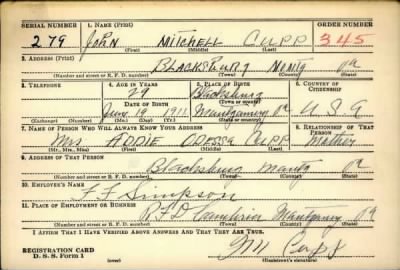 SERIAL NUMBER 1. NAME (Print) ORDER NUMBER
279 JOHN MITCHELL CUPP 345
(First) (Middle) (Last)
2. ADDRESS (Print)
BLACKSBURG Va
(Number and street or R. F. D. number) (Town) (County) (State)
3. TELEPHONE 4. AGE IN YEARS 5. PLACE OF BIRTH 6. COUNTRY OF CITIZENSHIP
29 Blacksburg
DATE OF BIRTH (Town or county)
19 1911 Montgomery Va U.S.A
(Exchange) (Number) (Mo.) (Day) (Yr.) (State or country)
7. NAME OF PERSON WHO WILL ALWAYS KNOW YOUR ADDRESS 8. RELATIONSHIP OF THAT PERSON
Mrs. ADDIE ODESSA CUPP Mother
(Mr., Mrs., Miss) (First) (Middle) (Last)
9. ADDRESS OF THAT PERSON
Blacksburg Va
(Number and street or R. F. D. number) (Town) (County) (State)
10. EMPLOYER'S NAME
F. F. Simpson
11. PLACE OF EMPLOYMENT OR BUSINESS
R.F.D. Montgomery Va
(Number and street or R. F. D. number) (Town) (County) (State)
I AFFIRM THAT I HAVE VERIFIED ABOVE ANSWERS AND THAT THEY ARE TRUE.
REGISTRATION CARD
D. S. S. Form 1 Cupp